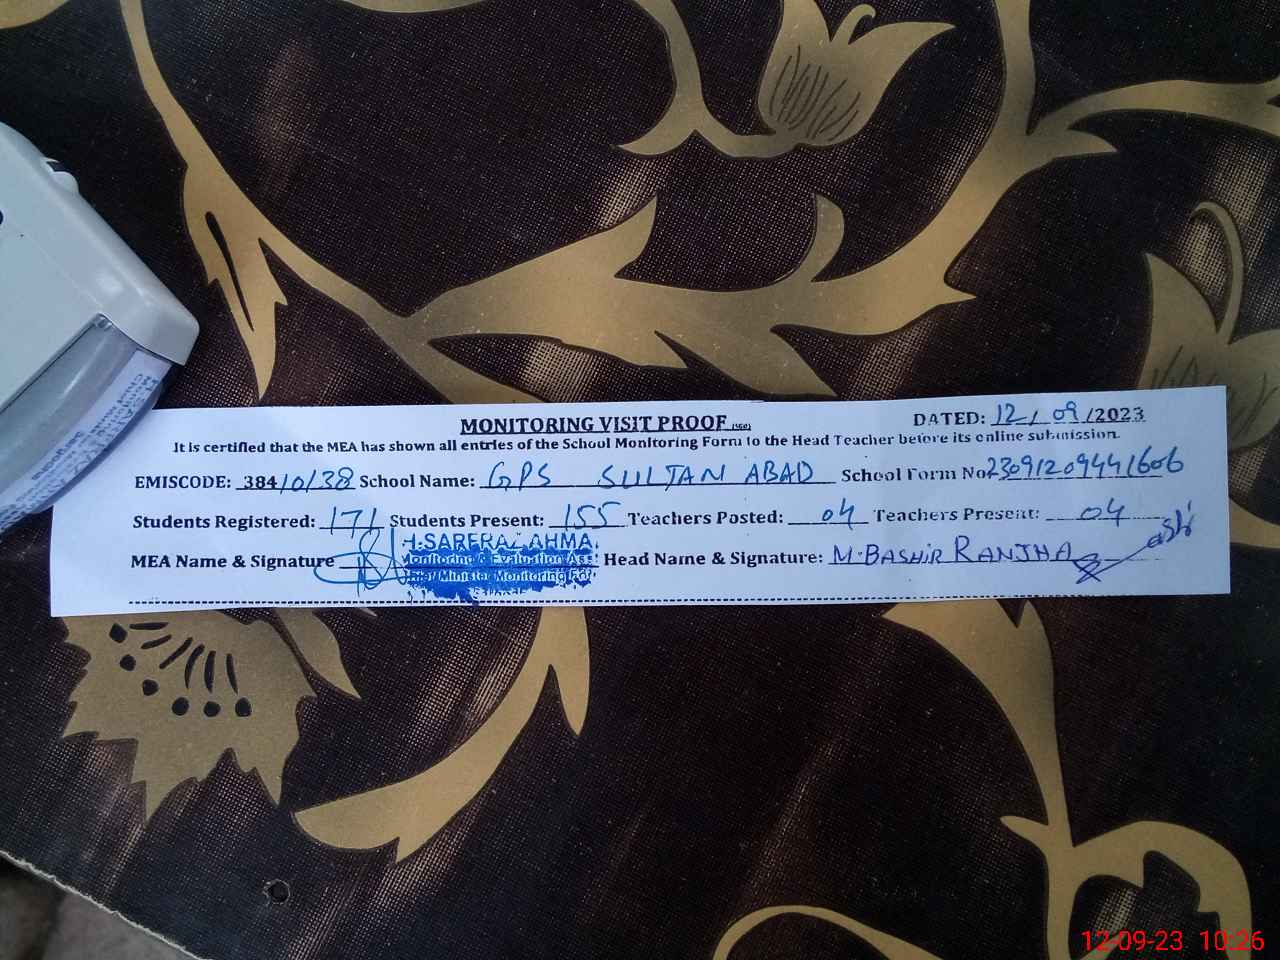 MONITORING VISIT PROOF DATED: 12/09/2023
It is certified that the MEA has shown all entries of the School Monitoring Form to the Head Teacher before its online submission.
EMISCODE: 38410138 School Name: GPS SULTAN ABAD School Form No 23091209441606
Students Registered: 171 Students Present: 155 Teachers Posted: 04 Teachers Present: 04
MEA Name & Signature Head Name & Signature: M.BASHIR RANJHA
Monitoring & Evaluation Ass
Minister Monitoring
12-09-23 10:26